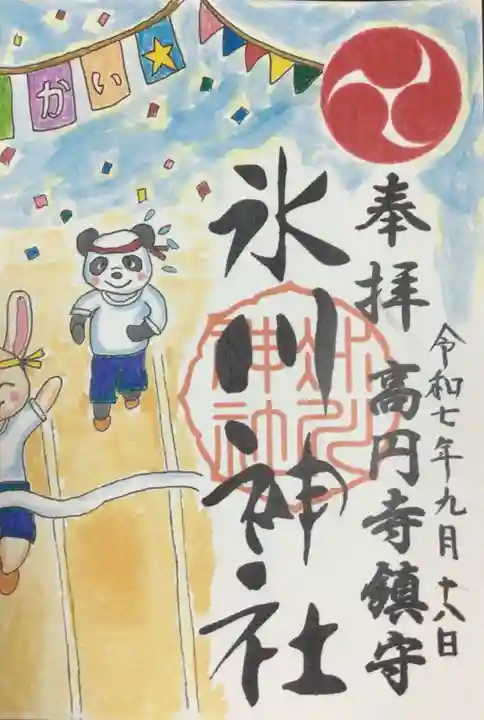 かい
奉拝
高円寺鎮守
氷川神社
令和七年九月十八日
氷川神社